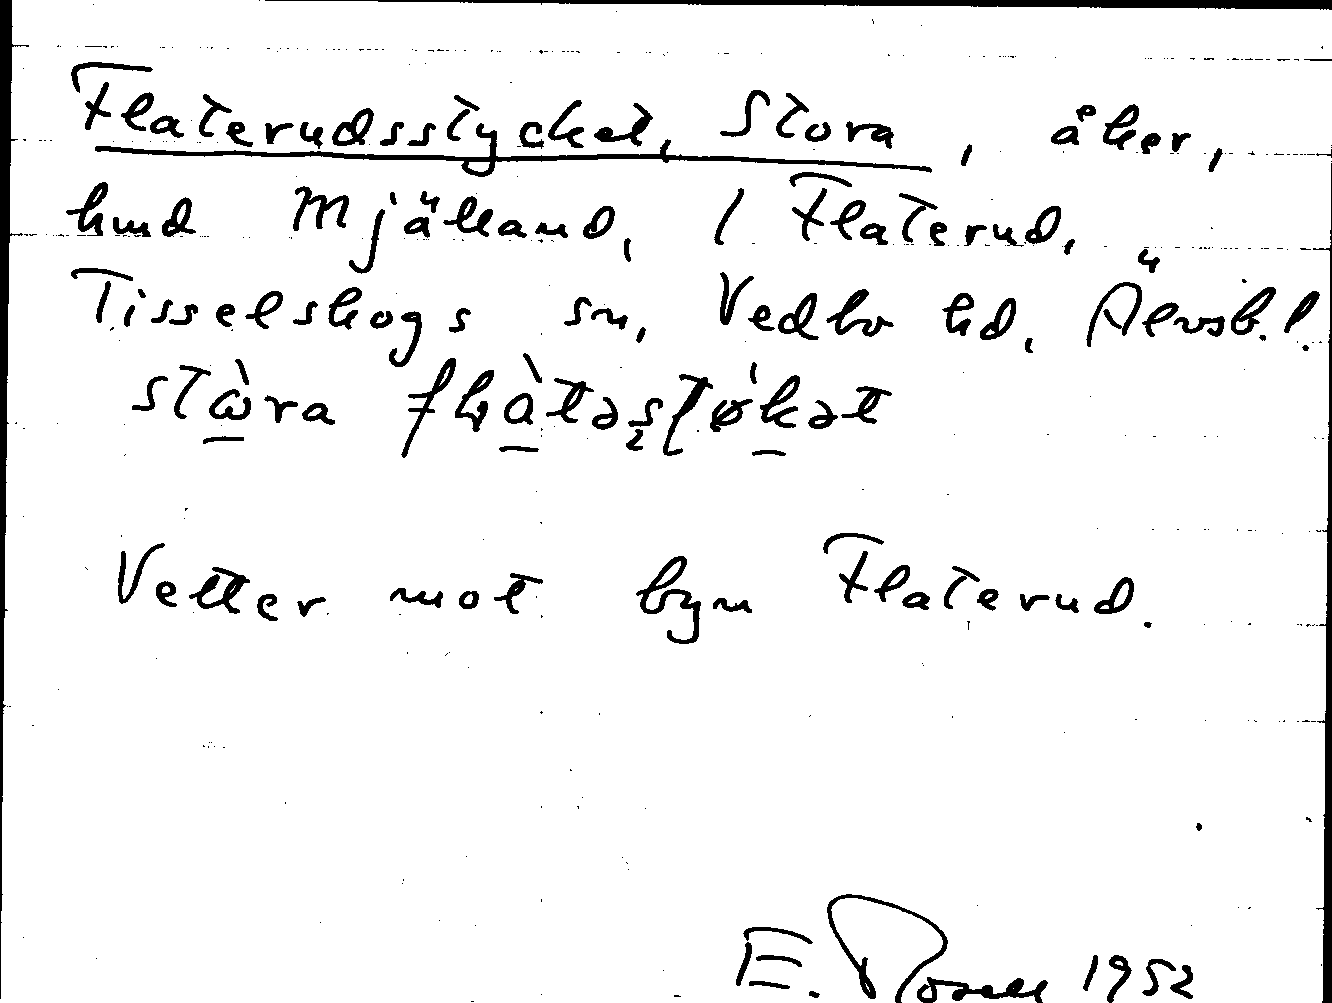 Flaterudsstycket, Stora, åker,
hmd Mjälland, 1 Flaterud,
Tisselskogs sn, Vedbo hd, Älvsb. l.
Vetter mot byn Flaterud.
E. Rosell 1952